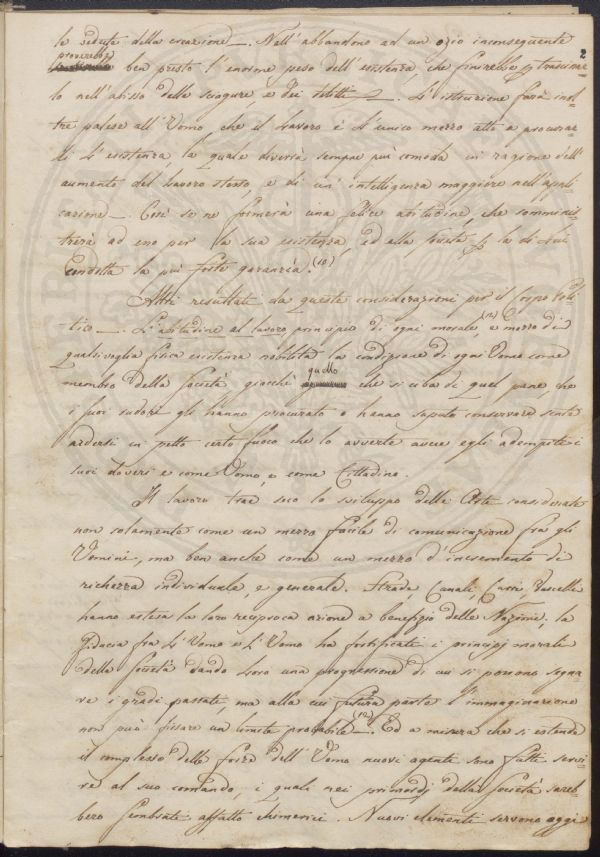 2
le vedute della creazione_. Nell' abbandono ad un ozio inconseguente
proverebbe
ben presto l'enorme peso dell'esistenza, che finirebbe p trascinar=
lo nell'abisso delle sciagure, e dei delitti_. L'istruzione farà inol=
tre palese all'Uomo che il Lavoro è l'unico mezzo atto a procurar=
gli l'esistenza, la quale diverrà sempre più comoda in ragione dell'
aumento del lavoro stesso, e di un' intelligenza maggiore nell'appli
cazione_. Così se ne formerà una felice abitudine, che somminis=
trerà ad esso per la sua esistenza, ed alla società p la di lui
condotta la più forte garanzia. (10)
Altri resultati da queste considerazioni per il Corpo Poli=
tico_. L'abitudine al lavoro principio di ogni morale, (11) e mezzo di
qualsivoglia fisica esistenza nobilita la condizione di ogni Uomo come
quello
membro della Società, giacchè che si ciba di quel pane, che
i suoi sudori gli hanno procurato o hanno saputo conservare sente
ardersi in petto certo fuoco che lo avverte avere egli adempito i
suoi doveri e come Uomo, e come Cittadino.
Il lavoro trae seco lo sviluppo delle Arti considerate
non solamente come un mezzo facile di comunicazione fra gli
Uomini, ma ben anche come un mezzo d'incremento di
richezza individuale, e generale. Strade, Canali, Carri, Vascelli
hanno estesa la loro reciproca azione a benefizio delle Nazioni, la
fiducia fra l'Uomo e l'Uomo ha fortificati i principj morali
della Società dando loro una progressione di cui si possono segna
re i gradi passati, ma alla cui futura parte l'immaginazione
non può fissare un limite probabile (12)_. Ed a misura che si estende
il complesso delle forze dell'Uomo nuovi agenti sono fatti servi=
re al suo comando, i quali nei primordj della Società sareb=
bero sembrati affatto chimerici. Nuovi elementi servono oggi